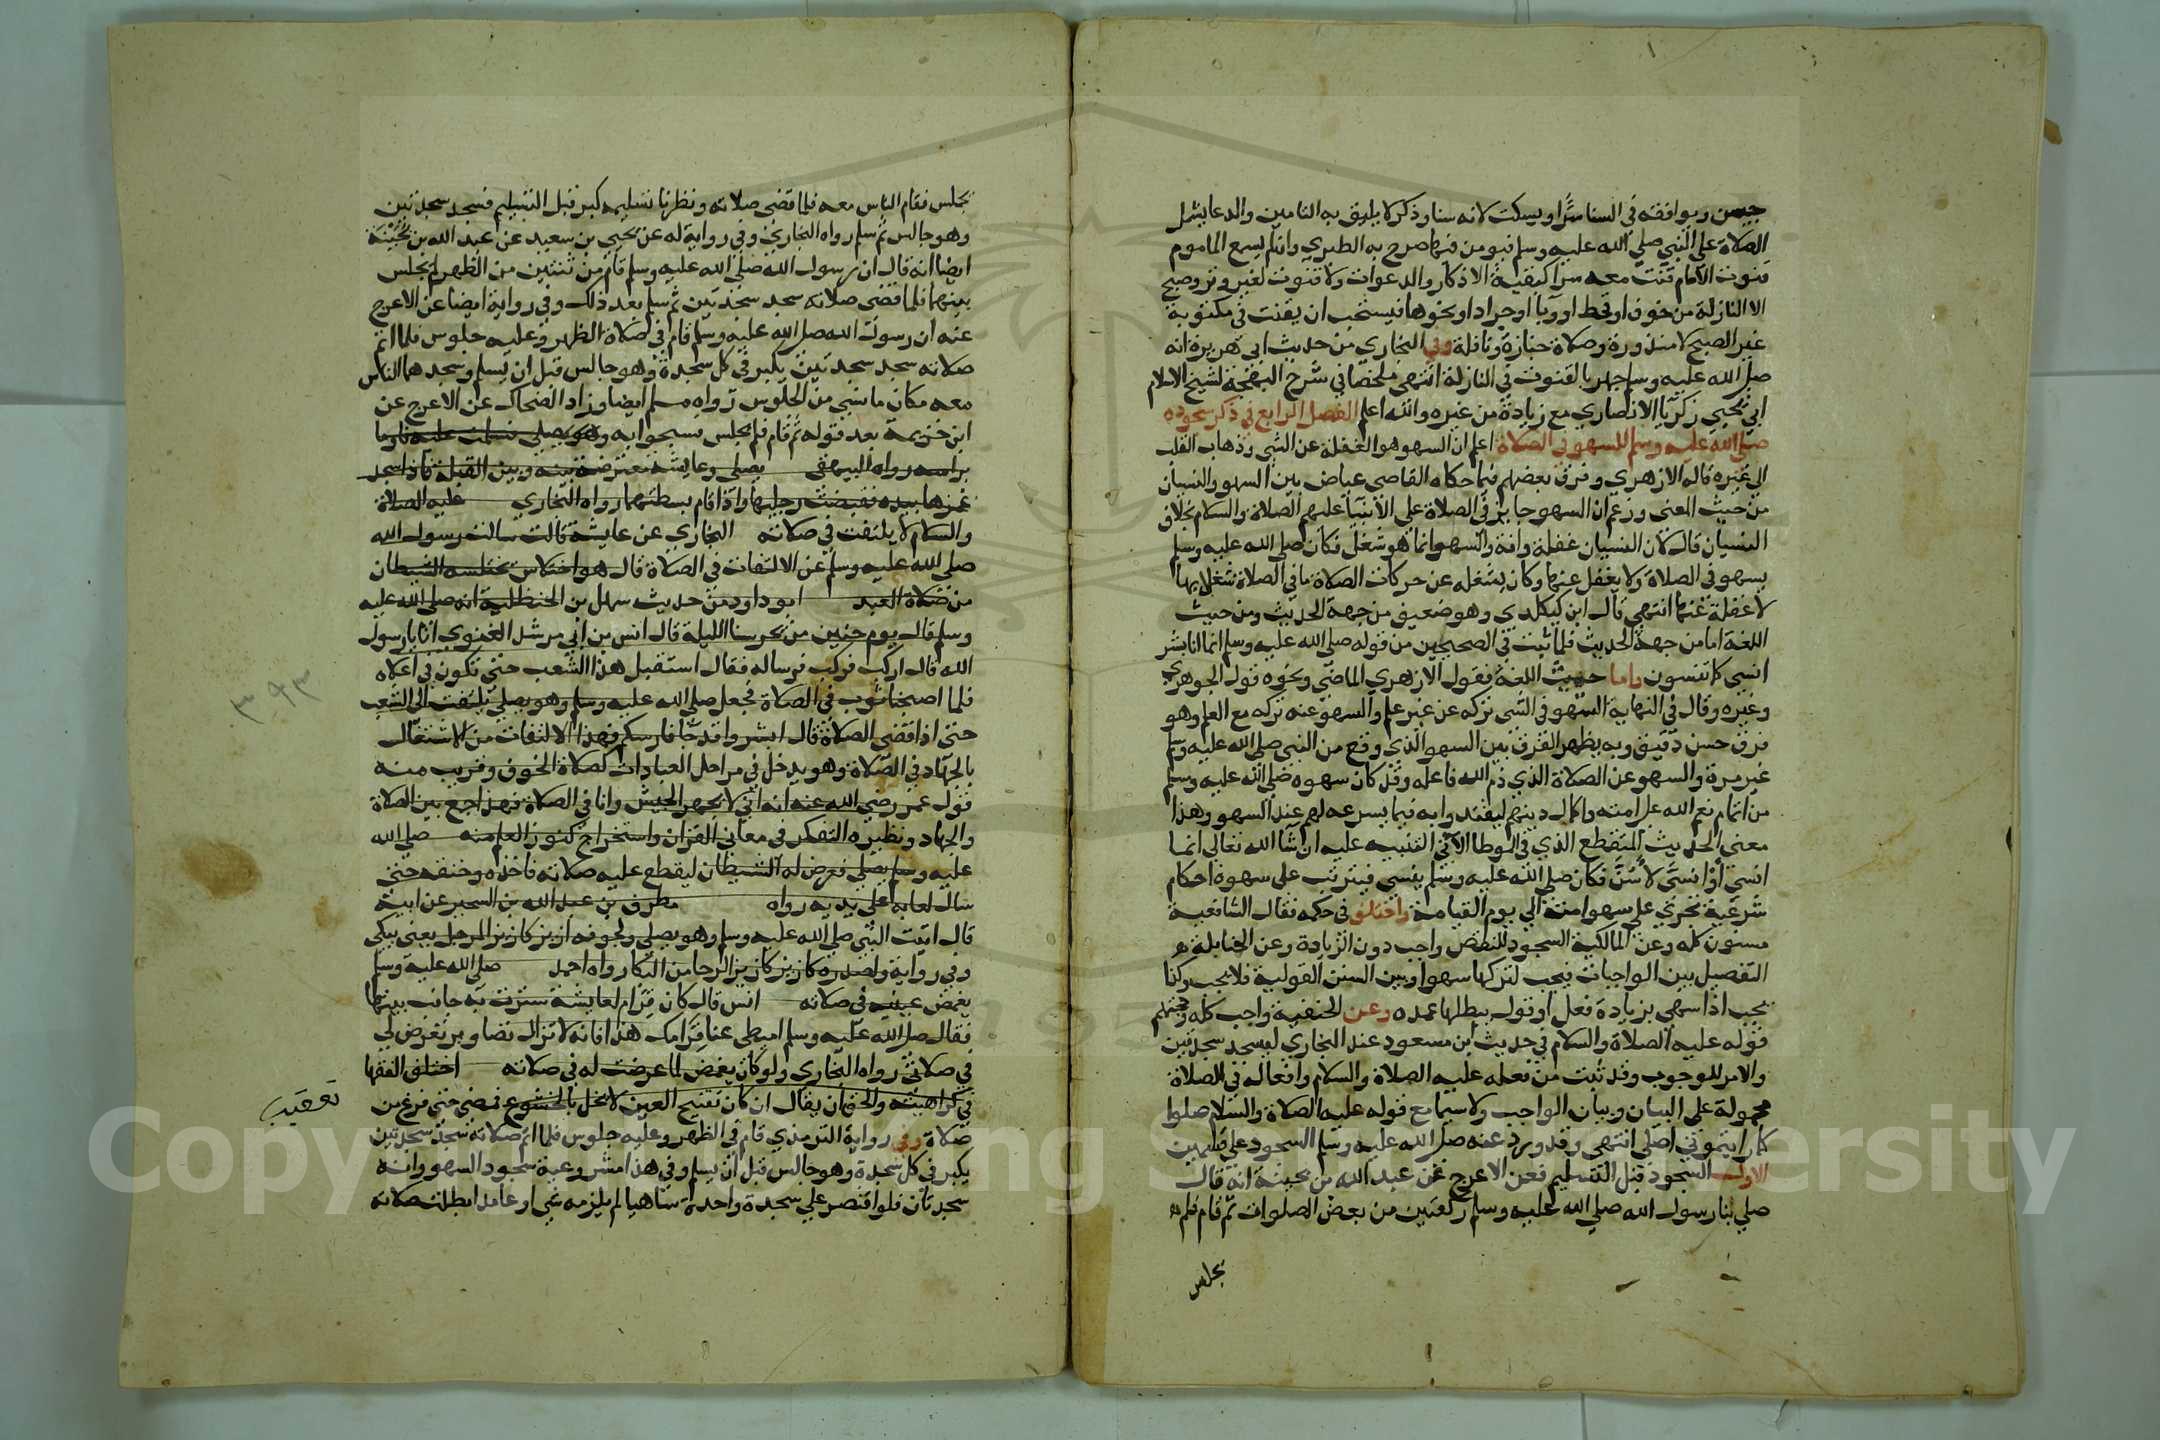 جيبين ويوافقه في الثنا سرا او يسكت لانه سنا وذكر لا يليق به التامين والدعا يشمل
الصلاة على النبي صلى الله عليه وسلم فيومن فيها صرح به الطبري وان لم يسمع الماموم
قنوت الامام قنت معه سرا كبقية الاذكار والدعوات ولا قنوت لغير وتر وصبح
الا النازلة من خوف او قحط او وبا او جراد او نحوها فيستحب ان يقنت في مكتوبة
غير الصبح لا منذورة وصلاة جنازة ونافلة وفي البخاري من حديث ابي هريرة انه
صلى الله عليه وسلم جهر بالقنوت في النازلة انتهى ملخصا في شرح البهجة لشيخ الاسلام
ابي يحيى زكريا الانصاري مع زيادة من غيره والله اعلم الفصل الرابع في ذكر سجوده
صلى الله عليه وسلم للسهو في الصلاة اعلم ان السهو هو الغفلة عن الشي وذهاب القلب
الى غيره قاله الازهري وفرق بعضهم فيما حكاه القاضي عياض بين السهو والنسيان
من حيث المعنى وزعم ان السهو جايز في الصلاة على الانبيا عليهم الصلاة والسلام بخلاف
النسيان قال لان النسيان غفلة وافة والسهو انما هو شغل فكان صلى الله عليه وسلم
يسهو في الصلاة ولا يغفل عنها وكان يشغله عن حركات الصلاة ما في الصلاة شغلا بها
لا غفلة عنها انتهى قال ابن كيكلدي وهو ضعيف من جهة الحديث ومن حيث
اللغة اما من جهة الحديث فلما ثبت في الصحيحين من قوله صلى الله عليه وسلم انما انا بشر
انسى كما تنسون واما حيث اللغة فقول الازهري الماضي ونحوه قول الجوهري
وغيره وقال في النهاية السهو في الشي تركه عن غير علم والسهو عنه تركه مع العلم وهو
فرق حسن دقيق وبه يظهر الفرق بين السهو الذي وقع من النبي صلى الله عليه وسلم
غير مرة والسهو عن الصلاة الذي ذم الله فاعله وقد كان سهوه صلى الله عليه وسلم
من اتمام نعم الله على امته واكمال دينهم ليقتدوا به فيما يسرعه لهم عند السهو وهذا
معنى الحديث المنقطع الذي في الموطا الاتي التنبيه عليه ان شا الله تعالى انما
انسى او انسى لاسن فكان صلى الله عليه وسلم ينسى فيترتب على سهوه احكام
شرعية تجري على سهو امته الى يوم القيامة واختلف في حكمه فقال الشافعية
مسنون كله وعن المالكية السجود للنقص واجب دون الزيادة وعن الحنابلة
التفصيل بين الواجبات فيجب لتركها سهوا وبين السنن القولية فلا يجب وكذا
يجب اذا سهى بزيادة فعل او قول يبطلها عمده وعن الحنفية واجب كله وحجتهم
قوله عليه الصلاة والسلام في حديث ابن مسعود عند البخاري ليسجد سجدتين
والامر للوجوب وقد ثبت من فعله عليه الصلاة والسلام وافعاله في الصلاة
محمولة على البيان وبيان الواجب ولا سيما مع قوله عليه الصلاة والسلام صلوا
كما رايتموني اصلى انتهى وقد ورد عنه صلى الله عليه وسلم السجود على قسمين
الاول السجود قبل التسليم فعن الاعرج عن عبد الله بن بحينة انه قال
صلى بنا رسول الله صلى الله عليه وسلم ركعتين من بعض الصلوات ثم قام فلم
يجلس
يجلس فقام الناس معه فلما قضى صلاته ونظرنا تسليمه كبر قبل التسليم فسجد سجدتين
وهو جالس ثم سلم رواه البخاري وفي رواية له عن يحيى بن سعيد عن عبد الله بن بحينة
ايضا انه قال ان رسول الله صلى الله عليه وسلم قام من ثنتين من الظهر لم يجلس
بينهما فلما قضى صلاته سجد سجدتين ثم سلم بعد ذلك وفي رواية ايضا عن الاعرج
عنه ان رسول الله صلى الله عليه وسلم قام في صلاة الظهر وعليه جلوس فلما اتم
صلاته سجد سجدتين يكبر في كل سجدة وهو جالس قبل ان يسلم وسجدهما الناس
معه مكان ما نسي من الجلوس رواه مسلم ايضا وزاد الضحاك عن الاعرج عن
ابن خزيمة بعد قوله ثم قام فلم يجلس فسبحوا به وهو يصلي فسلمت عليه فاوما
براسه رواه البيهقي يصلي وعايشة معترضة بينه وبين القبلة فاذا سجد
غمزها بيده فقبضت رجليها واذا قام بسطتهما رواه البخاري عليه الصلاة
والسلام لا يلتفت في صلاته البخاري عن عايشة قالت سالت رسول الله
صلى الله عليه وسلم عن الالتفات في الصلاة قال هو اختلاس يختلسه الشيطان
من صلاة العبد ابو داود من حديث سهل بن الحنظلية انه صلى الله عليه
وسلم قال يوم حنين من يحرسنا الليلة قال انس بن ابي مرشد الغنوي انا يا رسول
الله قال اركب فركب فرسا له فقال استقبل هذا الشعب حتى تكون في اعلاه
فلما اصبحنا ثوب في الصلاة فجعل صلى الله عليه وسلم وهو يصلي يلتفت الى الشعب
حتى اذا قضى الصلاة قال ابشروا قد جا فارسكم فهذا الالتفات من الاشتغال
بالجهاد في الصلاة وهو يدخل في مراحل العبادات كصلاة الخوف وقريب منه
قول عمر رضي الله عنه انه اني لاجهز الجيش وانا في الصلاة فهذا جمع بين الصلاة
والجهاد ونظيره التفكر في معاني القران واستخراج كنوز العلم منه صلى الله
عليه وسلم يصلي فعرض له الشيطان ليقطع عليه صلاته فاخذه وخنقه حتى
سال لعابه على يديه رواه مطرف بن عبد الله بن الشخير عن ابيه
قال اتيت النبي صلى الله عليه وسلم وهو يصلي ولجوفه ازيز كازيز المرجل يعني يبكي
وفي رواية ولصدره كازيز كازيز الرحا من البكا رواه احمد صلى الله عليه وسلم
يغمض عينيه في صلاته انس قال كان قرام لعايشة سترت به جانب بيتها
فقال صلى الله عليه وسلم اميطي عنا قرامك هذا فانه لا تزال تصاوير تعرض لي
في صلاتي رواه البخاري ولو كان يغمض لما عرضت له في صلاته اختلف الفقها
في كراهيته والحق ان يقال ان كان تفتيح العين لا يخل بالخشوع فمضى حتى فرغ من
صلاة وفي رواية الترمذي قام في الظهر وعليه جلوس فلما اتم صلاته سجد سجدتين
يكبر في كل سجدة وهو جالس قبل ان يسلم وفي هذا مشروعية سجود السهو وانه
سجدتان فلو اقتصر على سجدة واحدة ساهيا لم يلزمه شي او عامدا بطلت صلاته
٣٩٣
تعقيب
Copy King S ersity